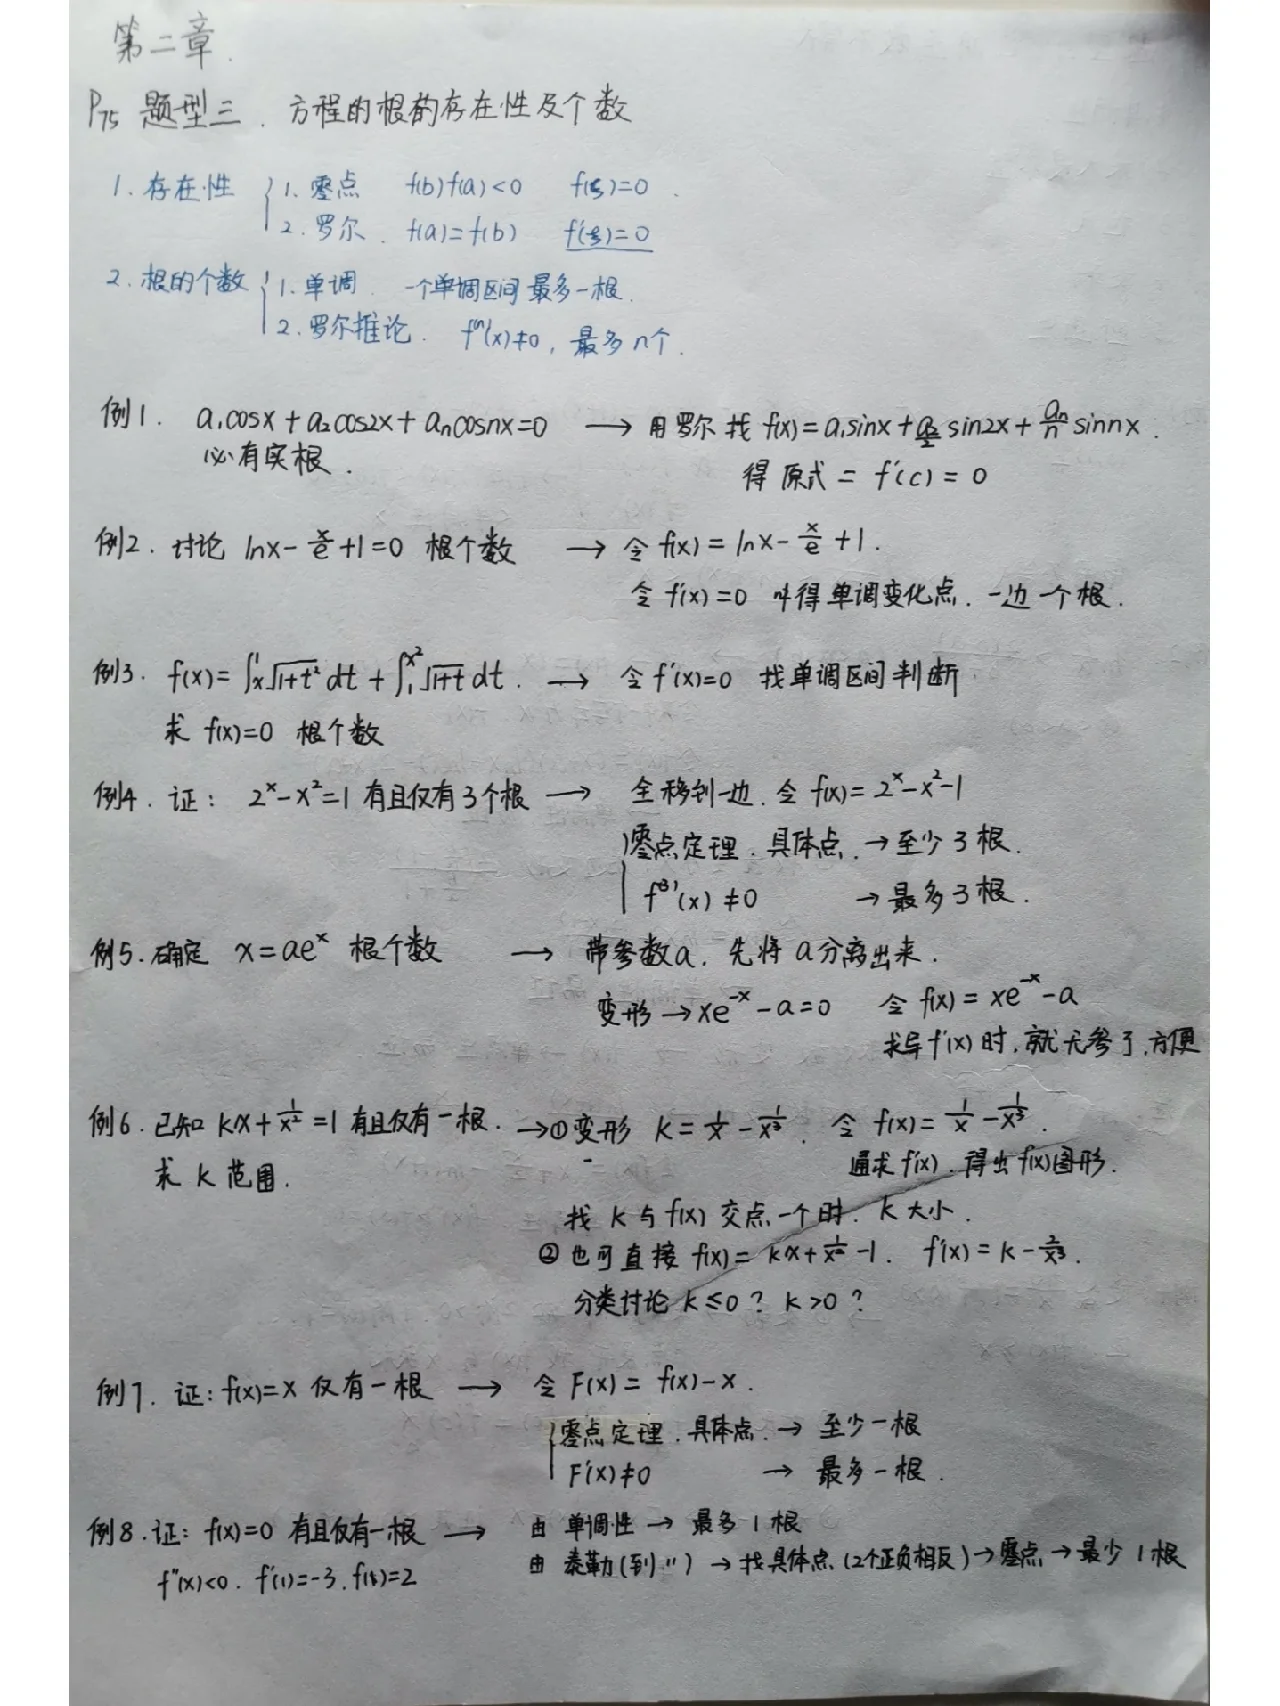 第二章.
P75 题型三. 方程的根的存在性及个数
1. 存在性 { 1. 零点 f(b)f(a)<0 f(ξ)=0.
2. 罗尔. f(a)=f(b) f'(ξ)=0
2. 根的个数 { 1. 单调. 一个单调区间最多一根.
2. 罗尔推论. f⁽ⁿ⁾(x)≠0, 最多n个.
例1. a₁cosx+a₂cos2x+aₙcosnx=0 → 用罗尔找 f(x)=a₁sinx+a₂/2 sin2x+aₙ/n sinnx.
必有实根. 得原式= f'(c)=0
例2. 讨论 lnx-x/e+1=0 根个数 → 令f(x)=lnx-x/e+1.
令f'(x)=0 叫得单调变化点. 一边一个根.
例3. f(x)=∫ₓ¹√(1+t²)dt+∫₁^(x²)√(1+t)dt. → 令f'(x)=0 找单调区间判断
求 f(x)=0 根个数
例4. 证: 2ˣ-x²=1有且仅有3个根 → 全移到一边. 令f(x)=2ˣ-x²-1
{ 零点定理. 具体点. →至少3根.
f⁽³⁾(x)≠0 →最多3根.
例5. 确定 x=aeˣ 根个数 → 带参数a. 先将a分离出来.
变形→xe⁻ˣ-a=0 令f(x)=xe⁻ˣ-a
求导f'(x)时, 就无参了, 方便
例6. 已知 kx+1/x²=1有且仅有一根. →①变形 k=1/x-1/x³. 令f(x)=1/x-1/x³.
求 k 范围. 通求f'(x). 得出f(x)图形.
找 k 与f(x) 交点一个时. k大小.
②也可直接 f(x)=kx+1/x²-1. f'(x)=k-2/x³.
分类讨论 k≤0? k>0?
例7. 证: f(x)=x 仅有一根 → 令F(x)= f(x)-x.
{ 零点定理. 具体点. → 至少一根
F'(x)≠0 → 最多一根.
例8. 证: f(x)=0 有且仅有一根 → 由 单调性→ 最多1根
f"(x)<0. f'(1)=-3, f(1)=2 由 泰勒(到") →找具体点(2个正负相反)→零点→最少1根